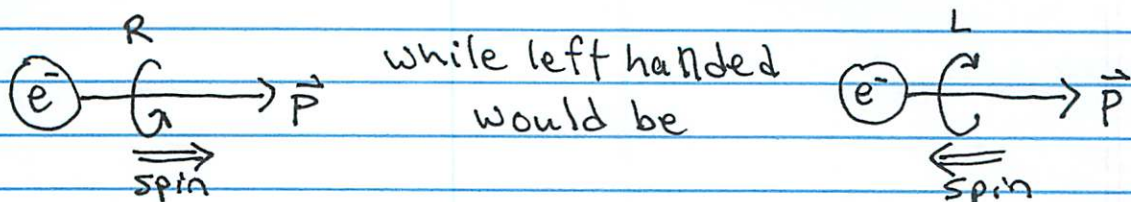 R
e⁻
p⃗
spin
while left handed
would be
L
e⁻
p⃗
spin